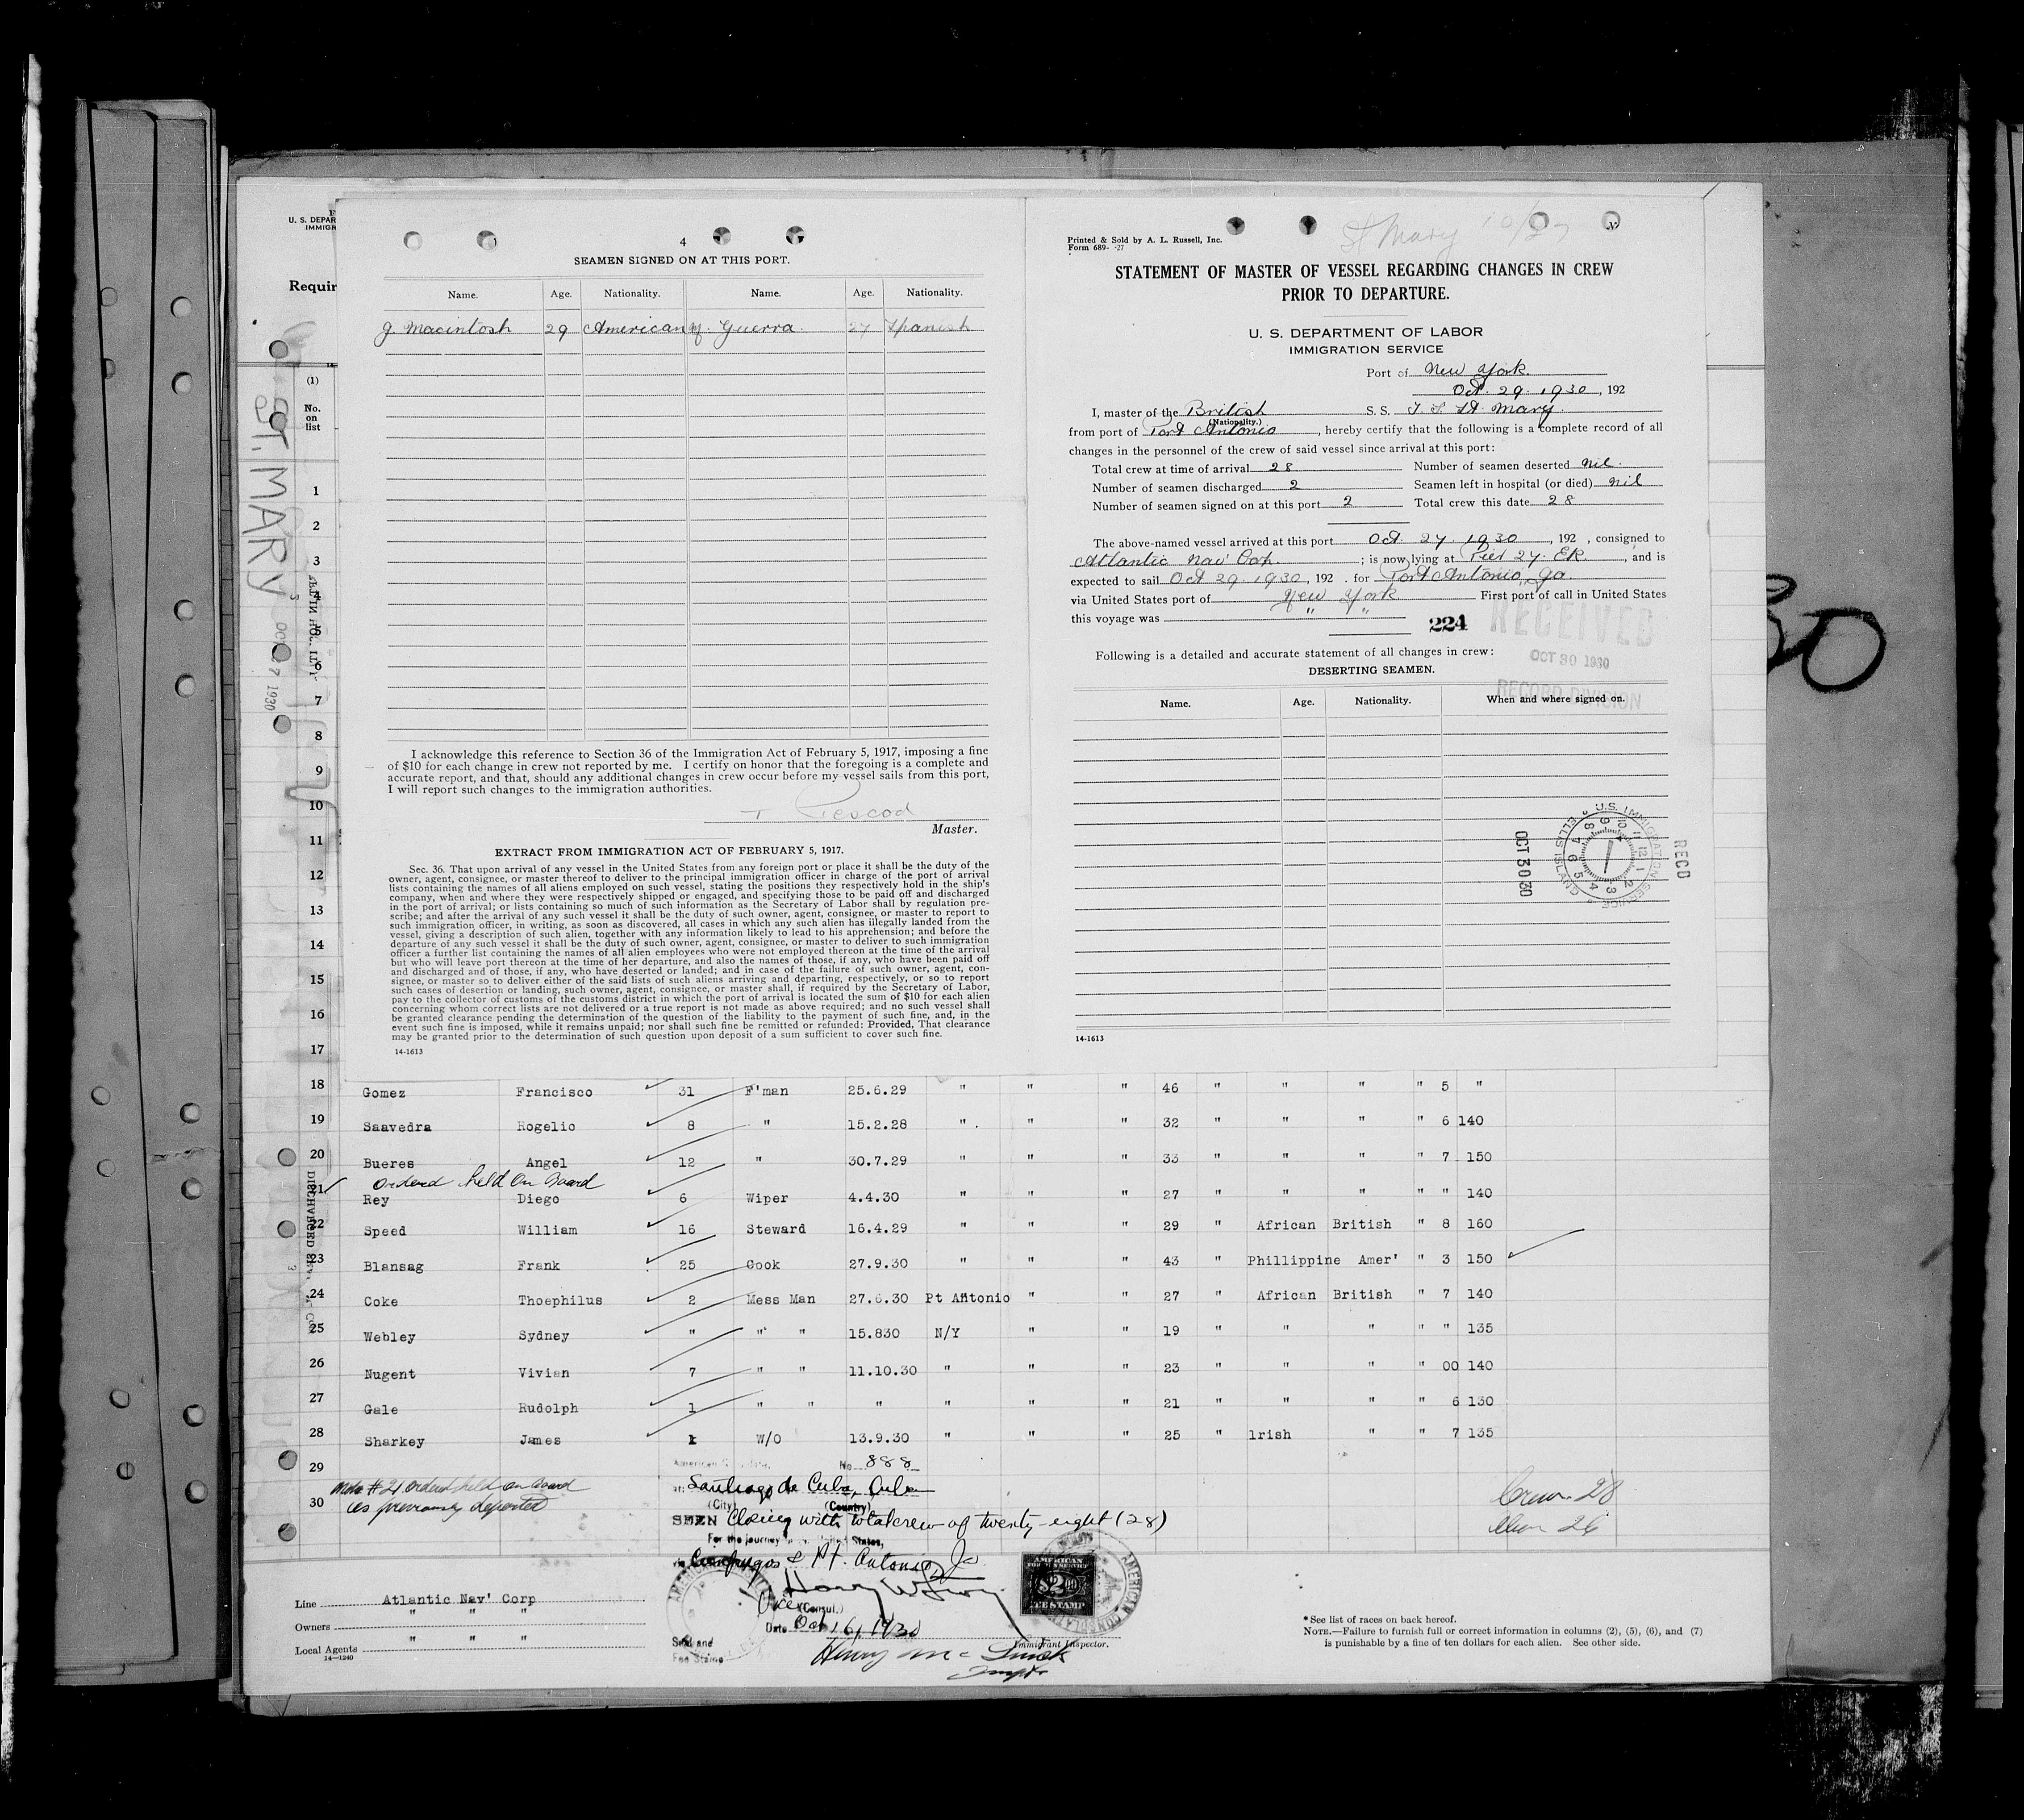 4
SEAMEN SIGNED ON AT THIS PORT.
Name. Age. Nationality. Name. Age. Nationality.
J. Macintosh 29 American Guerra. 27 Spanish
I acknowledge this reference to Section 36 of the Immigration Act of February 5, 1917, imposing a fine
of $10 for each change in crew not reported by me. I certify on honor that the foregoing is a complete and
accurate report, and that, should any additional changes in crew occur before my vessel sails from this port,
I will report such changes to the immigration authorities.
Pescod
Master.
EXTRACT FROM IMMIGRATION ACT OF FEBRUARY 5, 1917.
Sec. 36. That upon arrival of any vessel in the United States from any foreign port or place it shall be the duty of the
owner, agent, consignee, or master thereof to deliver to the principal immigration officer in charge of the port of arrival
lists containing the names of all aliens employed on such vessel, stating the positions they respectively hold in the ship's
company, when and where they were respectively shipped or engaged, and specifying those to be paid off and discharged
in the port of arrival; or lists containing so much of such information as the Secretary of Labor shall by regulation pre-
scribe; and after the arrival of any such vessel it shall be the duty of such owner, agent, consignee, or master to report to
such immigration officer, in writing, as soon as discovered, all cases in which any such alien has illegally landed from the
vessel, giving a description of such alien, together with any information likely to lead to his apprehension; and before the
departure of any such vessel it shall be the duty of such owner, agent, consignee, or master to deliver to such immigration
officer a further list containing the names of all alien employees who were not employed thereon at the time of the arrival
but who will leave port thereon at the time of her departure, and also the names of those, if any, who have been paid off
and discharged and of those, if any, who have deserted or landed; and in case of the failure of such owner, agent, con-
signee, or master so to deliver either of the said lists of such aliens arriving and departing, respectively, or so to report
such cases of desertion or landing, such owner, agent, consignee, or master shall, if required by the Secretary of Labor,
pay to the collector of customs of the customs district in which the port of arrival is located the sum of $10 for each alien
concerning whom correct lists are not delivered or a true report is not made as above required; and no such vessel shall
be granted clearance pending the determination of the question of the liability to the payment of such fine, and, in the
event such fine is imposed, while it remains unpaid; nor shall such fine be remitted or refunded: Provided, That clearance
may be granted prior to the determination of such question upon deposit of a sum sufficient to cover such fine.
14-1613
Printed & Sold by A. L. Russell, Inc.
Form 689- -27
St Mary 10/27
STATEMENT OF MASTER OF VESSEL REGARDING CHANGES IN CREW
PRIOR TO DEPARTURE.
U. S. DEPARTMENT OF LABOR
IMMIGRATION SERVICE
Port of New York.
Oct. 29. 1930, 192
I, master of the British S. S. St. Mary.
(Nationality.)
from port of Port Antonio, hereby certify that the following is a complete record of all
changes in the personnel of the crew of said vessel since arrival at this port:
Total crew at time of arrival 28 Number of seamen deserted nil.
Number of seamen discharged 2 Seamen left in hospital (or died) nil
Number of seamen signed on at this port 2 Total crew this date 28
The above-named vessel arrived at this port Oct. 27. 1930, 192 , consigned to
Atlantic Nav' ; is now lying at Pier 27. ER., and is
expected to sail Oct 29. 1930, 192 . for Port Antonio, Ja.
via United States port of New York First port of call in United States
this voyage was " "
224
RECEIVED
OCT 30 1930
RECORD DIVISION
Following is a detailed and accurate statement of all changes in crew:
DESERTING SEAMEN.
Name. Age. Nationality. When and where signed on.
RECD
U.S. IMMIGRATION SERVICE ELLIS ISLAND
OCT 30 30
14-1613
U. S. DEPAR
IMMIGR
Requir
(1)
No.
on
list
ST. MARY
OCT 27 1930
1
2
3
4
5
6
7
8
9
10
11
12
13
14
15
16
17
18 Gomez Francisco 31 F'man 25.6.29 " " " 46 " " " " 5 "
19 Saavedra Rogelio 8 " 15.2.28 " . " " 32 " " " " 6 140
20 Bueres Angel 12 " 30.7.29 " " " 33 " " " " 7 150
ordered held on board
21 Rey Diego 6 Wiper 4.4.30 " " " 27 " " " " " 140
22 Speed William 16 Steward 16.4.29 " " " 29 " African British " 8 160
23 Blansag Frank 25 Cook 27.9.30 " " " 43 " Phillippine Amer' " 3 150
24 Coke Thoephilus 2 Mess Man 27.6.30 Pt Antonio " " 27 " African British " 7 140
25 Webley Sydney " " " 15.830 N/Y " " 19 " " " " " 135
26 Nugent Vivian 7 " " 11.10.30 " " " 23 " " " " 00 140
27 Gale Rudolph 1 " " " " " " 21 " " " " 6 130
28 Sharkey James 1 W/O 13.9.30 " " " 25 " lrish " " 7 135
29
30
Note #21 ordered held on board
as previously deported
No. 888
at Santiago de Cuba, Cuba
(City) (Country)
SEEN Closing with total crew of twenty-eight (28)
For the journey United States,
via Cienfuegos & Pt. Antonio, Ja
Vice (Consul.)
Date Oct 16, 1930
Seal and
Fee Stamp
AMERICAN
FOREIGN SERVICE
$2.00
FEE STAMP
AMERICAN CONSUL
Immigrant Inspector.
Crew 28
26
Line Atlantic Nav' Corp
Owners " " "
Local Agents " " "
14—1240
*See list of races on back hereof.
NOTE.—Failure to furnish full or correct information in columns (2), (5), (6), and (7)
is punishable by a fine of ten dollars for each alien. See other side.
30